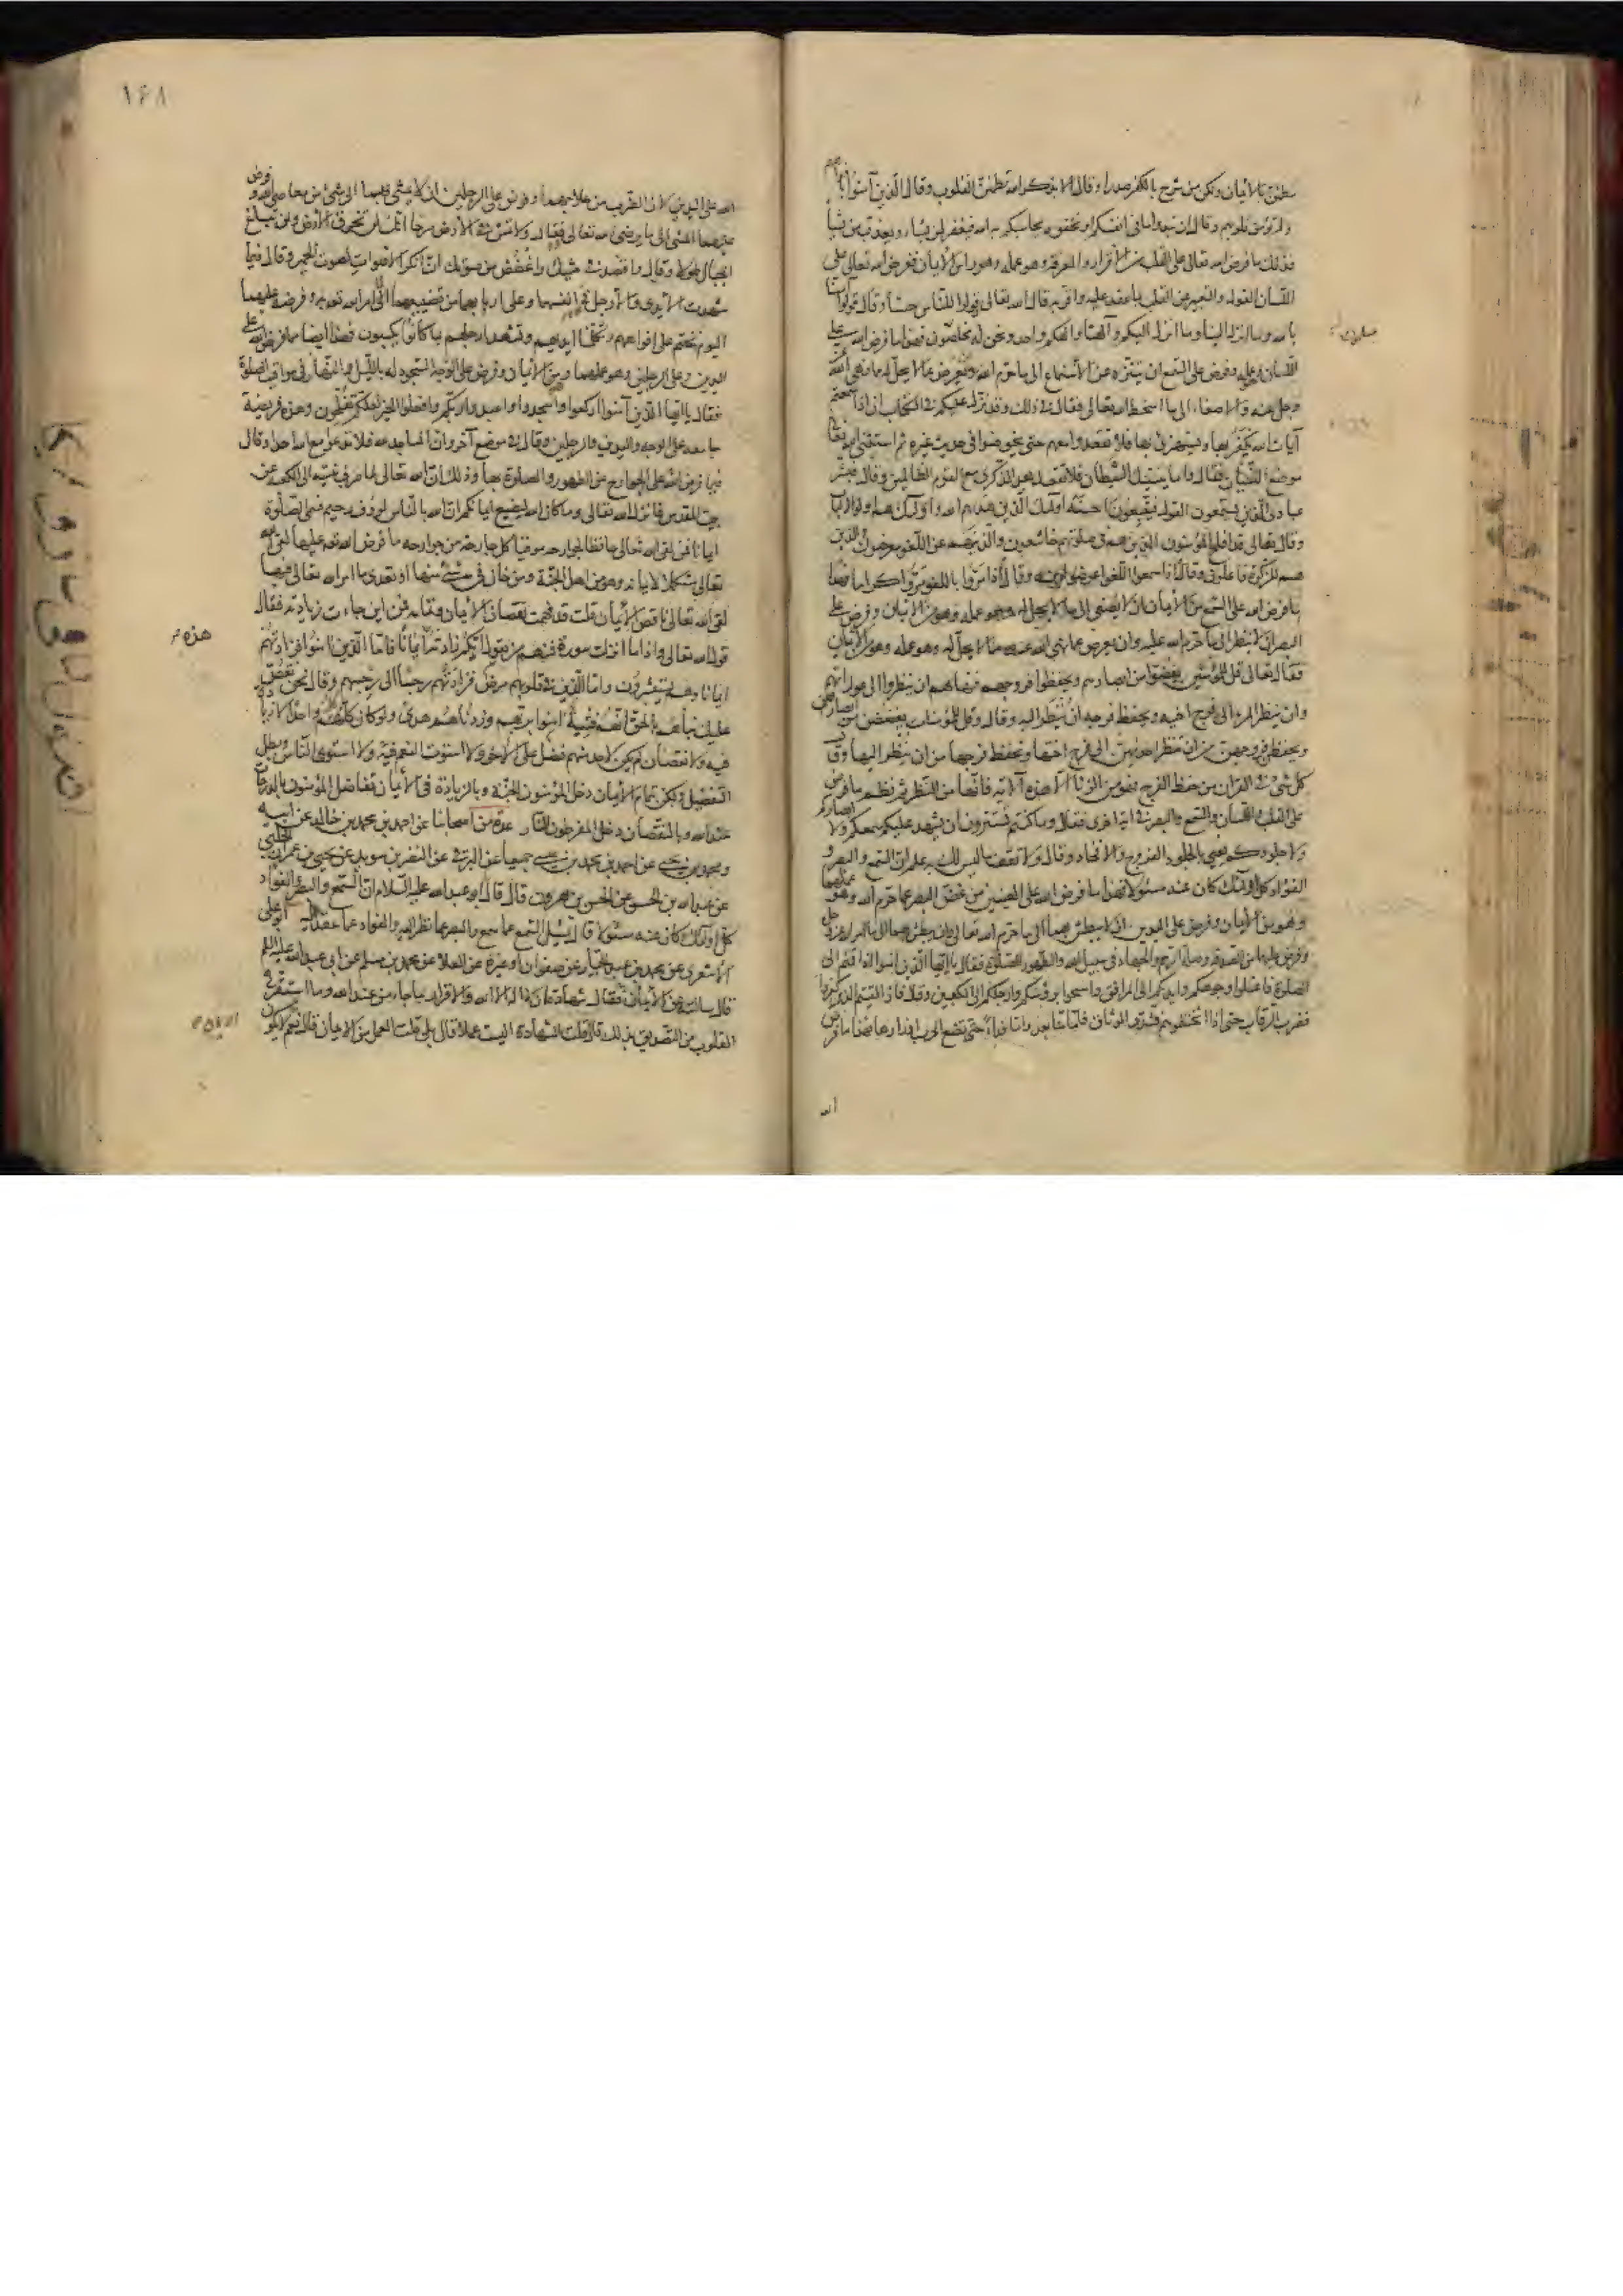 مطمئن بالأيمان ولكن من شرح بالكفر صدرا وقال الا بذكر الله تطمئن القلوب وقال الذين آمنوا بأفواههم
ولم تؤمن قلوبهم وقال ان تبدوا ما فى انفسكم او تخفوه يحاسبكم به الله فيغفر لمن يشاء ويعذب من يشاء
فذلك ما فرض الله تعالى على القلب من الاقرار والمعرفة وهو عمله وهو راس الايمان وفرض الله تعالى على
اللسان القول والتعبير عن القلب بما عقد عليه واقر به قال الله تعالى قولوا للناس حسنا وقال قولوا آمنا
بالله وما انزل الينا وما انزل اليكم وآلهنا والهكم واحد ونحن له مسلمون فهذا ما فرض الله على
اللسان وهو عمله وفرض على السمع ان يتنزه عن الاستماع الى ما حرم الله وان يعرض عما لا يحل له مما نهى الله
عز وجل عنه والاصغاء الى ما اسخط الله تعالى فقال فى ذلك وقد نزل عليكم فى الكتاب ان اذا سمعتم
آيات الله يكفر بها ويستهزئ بها فلا تقعدوا معهم حتى يخوضوا فى حديث غيره ثم استثنى الله تعالى
موضع النسيان فقال واما ينسينك الشيطان فلا تقعد بعد الذكرى مع القوم الظالمين وقال فبشر
عبادى الذين يستمعون القول فيتبعون احسنه اولئك الذين هداهم الله واولئك هم اولوا الالباب
وقال تعالى قد افلح المؤمنون الذين هم فى صلوتهم خاشعون والذين هم عن اللغو معرضون والذين
هم للزكوة فاعلون وقال اذا سمعوا اللغو اعرضوا عنه وقال واذا مروا باللغو مروا كراما فهذا
ما فرض الله على السمع من الأيمان ان لا يصغى الى ما لا يحل له وهو عمله وهو من الايمان وفرض على
البصر ان لا ينظر الى ما حرم الله عليه وان يعرض عما نهى الله عنه مما لا يحل له وهو عمله وهو من الايمان
فقال تعالى قل للمؤمنين يغضوا من ابصارهم ويحفظوا فروجهم فنهاهم ان ينظروا الى عوراتهم
وان ينظر المرء الى فرج اخيه ويحفظ فرجه ان ينظر اليه وقال وقل للمؤمنات يغضضن من ابصارهن
ويحفظن فروجهن من ان تنظر احديهن الى فرج اختها وتحفظ فرجها من ان ينظر اليها وقال
كل شئ فى القرآن من حفظ الفرج فهو من الزنا الا هذه الآية فانها من النظر ثم نظم ما فرض
على القلب واللسان والسمع والبصر فى اية اخرى فقال وما كنتم تستترون ان يشهد عليكم سمعكم ولا ابصاركم
ولا جلودكم يعنى بالجلود الفروج والافخاذ وقال ولا تقف ما ليس لك به علم ان السمع والبصر و
الفؤاد كل اولئك كان عنه مسئولا فهذا ما فرض الله على العينين من غض البصر عما حرم الله وهو عملهما
وهو من الأيمان وفرض على اليدين ان لا يبطش بهما الى ما حرم الله تعالى وان يبطش بهما الى ما امر الله عز وجل
وفرض عليهما من الصدقة وصلة الرحم والجهاد فى سبيل الله والطهور للصلوة فقال يا ايها الذين امنوا اذا قمتم الى
الصلوة فاغسلوا وجوهكم وايديكم الى المرافق وامسحوا برؤسكم وارجلكم الى الكعبين وقال فاذا لقيتم الذين كفروا
فضرب الرقاب حتى اذا اثخنتموهم فشدوا الوثاق فاما منا بعد واما فداء حتى تضع الحرب اوزارها فهذا ما فرض
الله
١٦٨
الله على اليدين لان الضرب من علاجهما وفرض على الرجلين ان لا يمشى بهما الى شئ من معاصى الله وفرض
عليهما المشى الى ما يرضى الله تعالى فقال ولا تمش فى الارض مرحا انك لن تخرق الارض ولن تبلغ
الجبال طولا وقال واقصد فى مشيك واغضض من صوتك ان انكر الاصوات لصوت الحمير وقال فيما
شهدت الايدى والارجل على انفسهما وعلى اربابهما من تضييعهما لما امر الله تعالى به وفرضه عليهما
اليوم نختم على افواههم وتكلمنا ايديهم وتشهد ارجلهم بما كانوا يكسبون فهذا ايضا مما فرض الله على
اليدين وعلى الرجلين وهو عملهما وهو من الايمان وفرض على الوجه السجود له بالليل والنهار فى مواقيت الصلوة
فقال يا ايها الذين آمنوا اركعوا واسجدوا واعبدوا ربكم وافعلوا الخير لعلكم تفلحون وهذه فريضة
جامعة على الوجه واليدين والرجلين وقال فى موضع آخر وان المساجد لله فلا تدعوا مع الله احدا وقال
فيما فرض الله على الجوارح من الطهور والصلوة بها وذلك ان الله تعالى لما صرف نبيه الى الكعبة عن
بيت المقدس فانزل الله تعالى وما كان الله ليضيع ايمانكم ان الله بالناس لرؤف رحيم فسمى الصلوة
ايمانا فمن لقى الله تعالى حافظا لجوارحه موفيا كل جارحة من جوارحه ما فرض الله تعالى عليها لقى الله
تعالى مستكملا لايمانه وهو من اهل الجنة ومن خان فى شئ منها او تعدى ما امر الله تعالى فيها
لقى الله تعالى ناقص الأيمان قلت قد فهمت نقصان الايمان وتمامه فمن اين جاءت زيادته فقال
قول الله تعالى واذا ما انزلت سورة فمنهم من يقول ايكم زادته هذه ايمانا فاما الذين امنوا فزادتهم
ايمانا وهم يستبشرون واما الذين فى قلوبهم مرض فزادتهم رجسا الى رجسهم وقال نحن نقص
عليك نبأهم بالحق انهم فتية امنوا بربهم وزدناهم هدى ولو كان كله واحدا لا زيادة
فيه ولا نقصان لم يكن لاحد منهم فضل على الآخر ولا استوت النعم فيه ولا استوى الناس وبطل
التفضيل ولكن بتمام الأيمان دخل المؤمنون الجنة وبالزيادة فى الايمان تفاضل المؤمنون بالدرجات
عند الله وبالنقصان دخل المفرطون النار عدة من اصحابنا عن احمد بن محمد بن خالد عن ابيه
ومحمد بن يحيى عن احمد بن محمد بن عيسى جميعا عن البرقى عن النضر بن سويد عن يحيى بن عمران الحلبى
عن عبيد الله بن الحسن عن الحسن بن هرون قال قال ابو عبد الله عليه السلام ان السمع والبصر والفؤاد
كل اولئك كان عنه مسئولا قال يسئل السمع عما سمع والبصر عما نظر اليه والفؤاد عما عقد عليه ابو على
الأشعرى عن محمد بن عبد الجبار عن صفوان او غيره عن العلا عن محمد بن مسلم عن ابى عبد الله عليه السلم
قال سالته عن الأيمان فقال شهادة ان لا اله الا الله والاقرار بما جاء من عند الله وما استقر فى
القلوب من التصديق بذلك قال قلت الشهادة اليست عملا قال بلى قلت العمل من الايمان قال نعم لا يكون
هذه